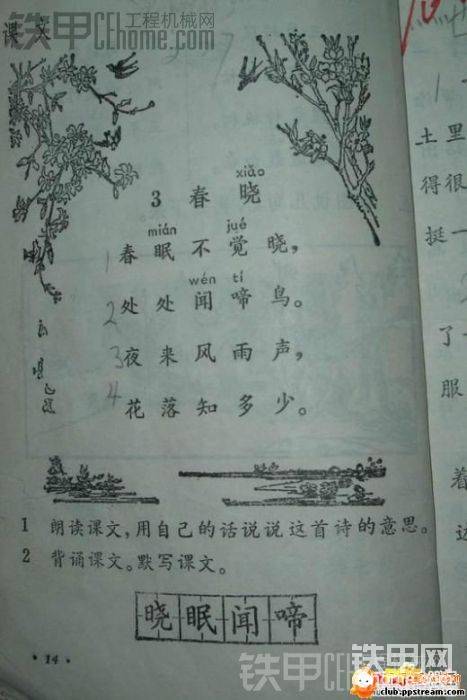 铁甲工程机械网
CEhome.com
课文
xiǎo
3 春晓
mián jué
1 春眠不觉晓，
wén tí
2 处处闻啼鸟。
3 夜来风雨声，
4 花落知多少。
1 朗读课文，用自己的话说说这首诗的意思。
2 背诵课文。默写课文。
晓眠闻啼
·14·
土里
得很
挺一
了
服
着
铁甲网
club.ppstream.com